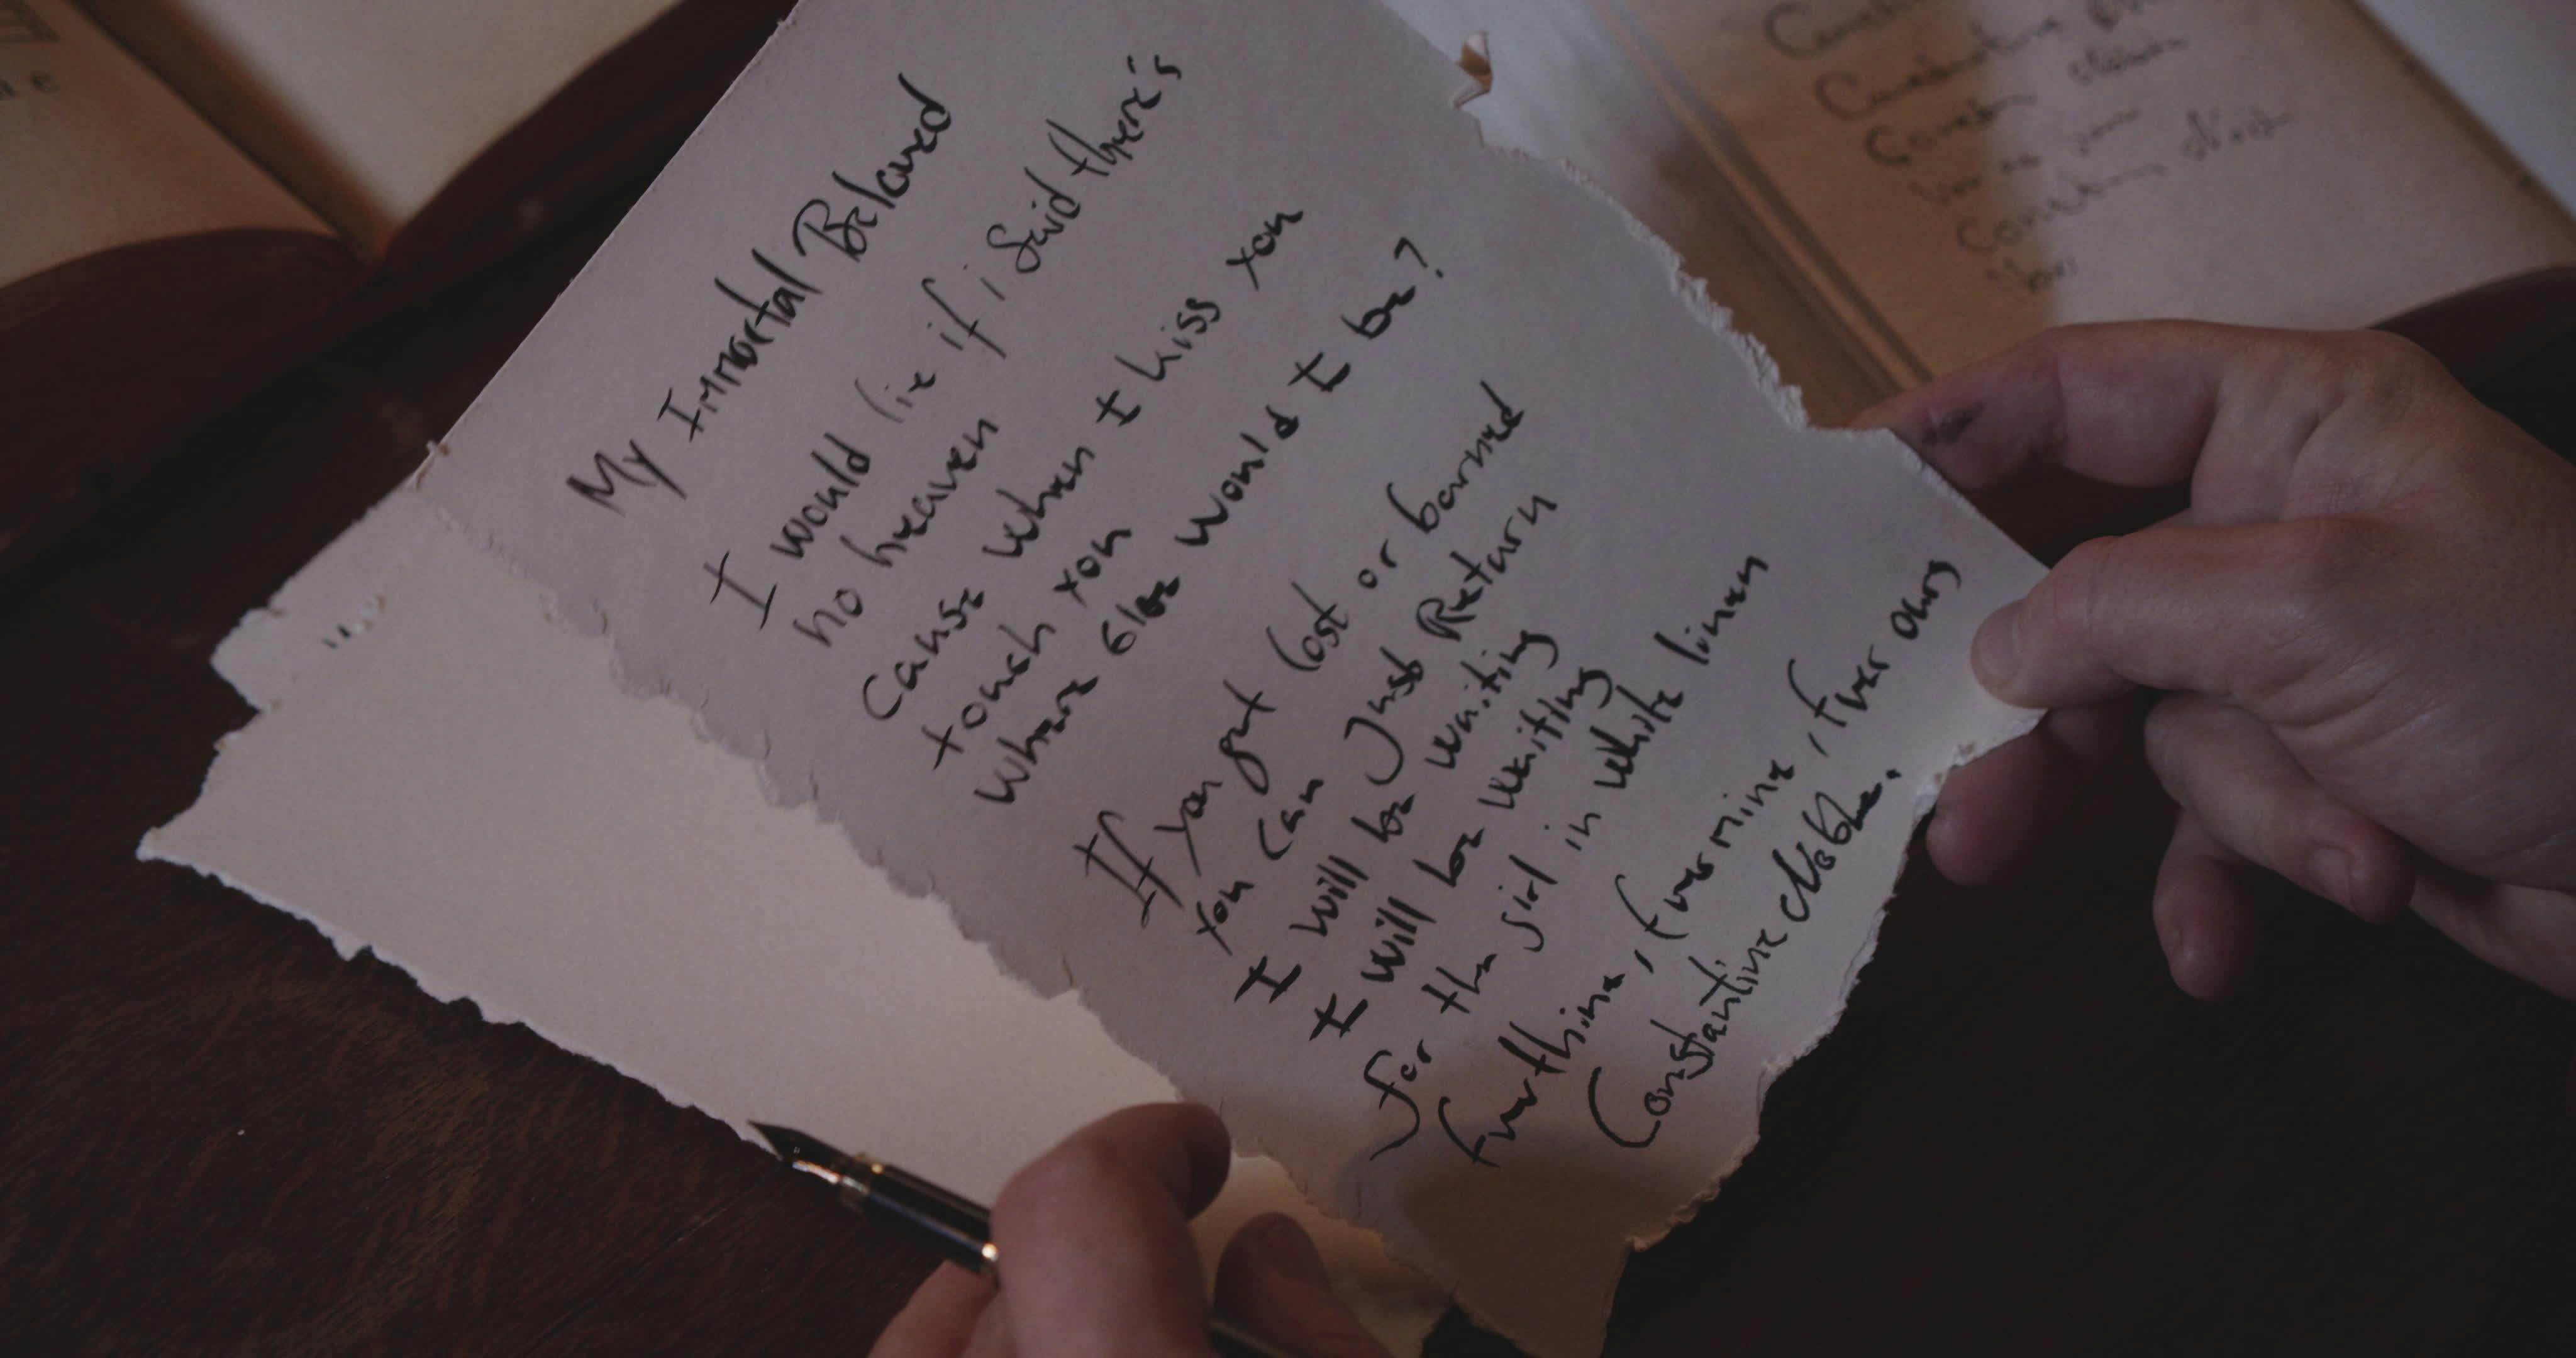 My Immortal Beloved
I would lie if i Said there's
no heaven
Cause when I kiss you
touch you
where else would I be?
If you get lost or borned
you can Just Return
I will be waiting
I will be waiting
for the girl in white linen
Ever thine, Ever mine, Ever ours
Constantine Noble.